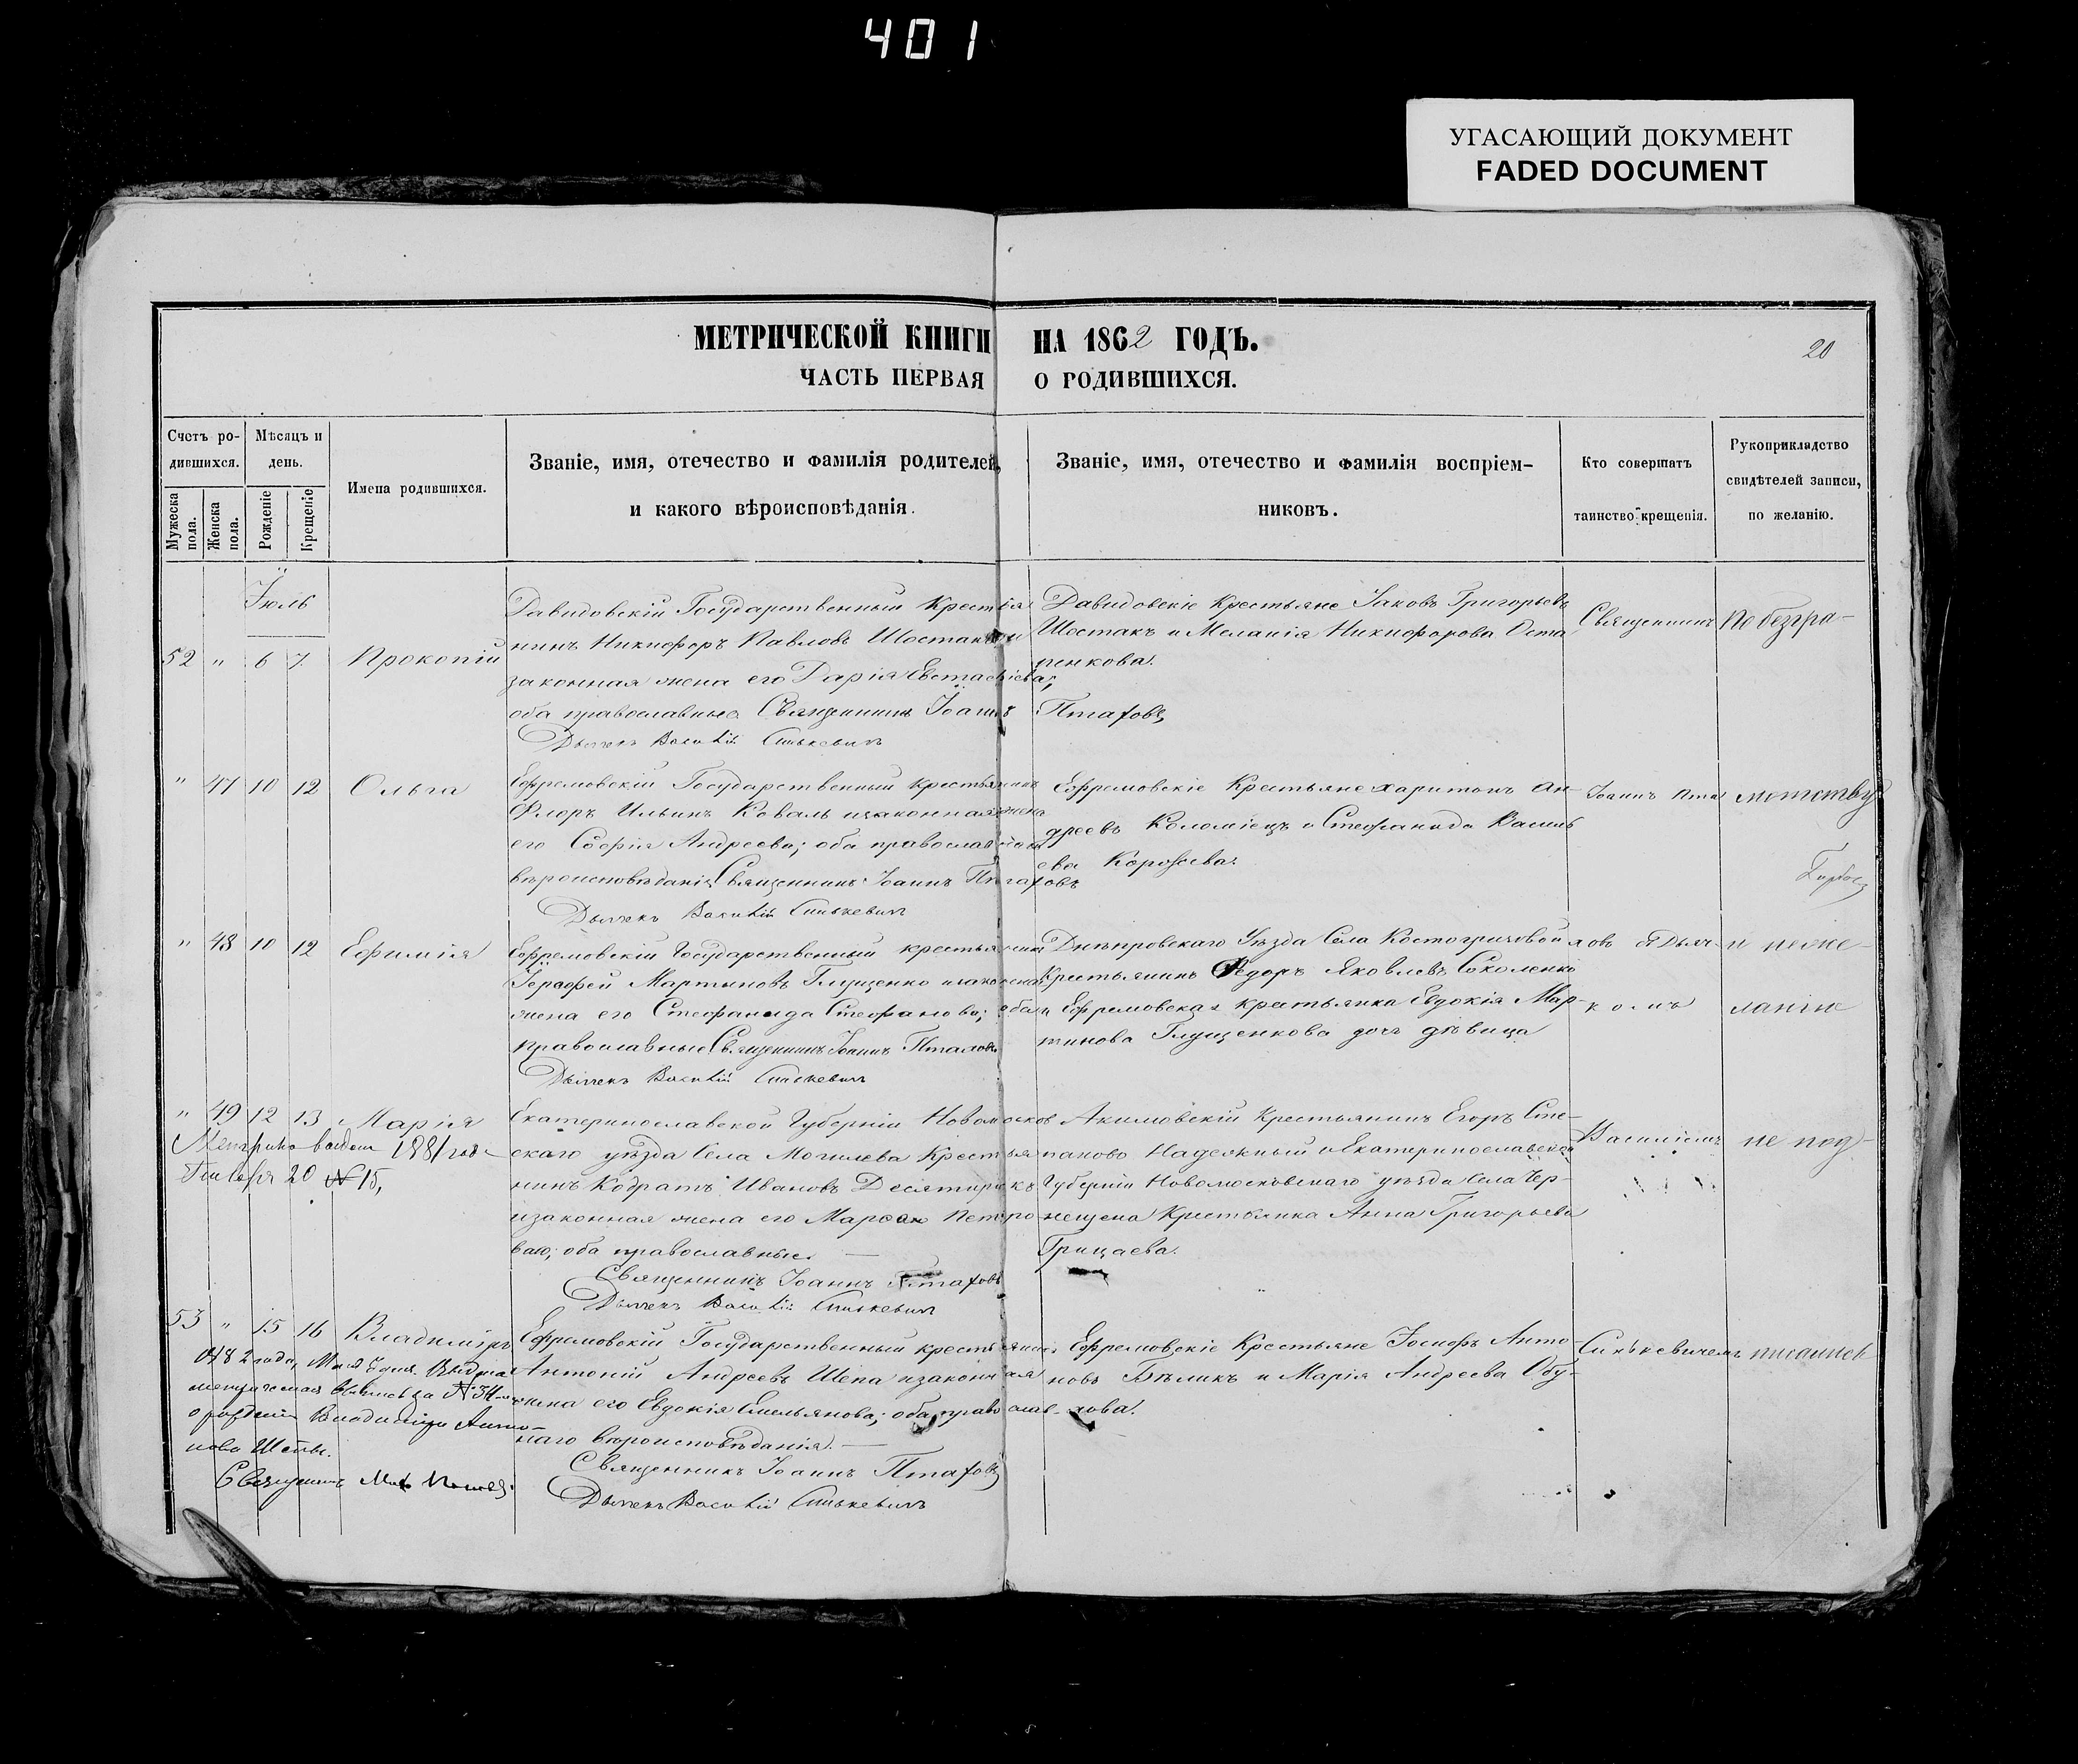 401
УГАСАЮЩИЙ ДОКУМЕНТ
FADED DOCUMENT
МЕТРИЧЕСКОЙ КНИГИ НА 1862 ГОДЪ.
20
ЧАСТЬ ПЕРВАЯ О РОДИВШИХСЯ.
Счетъ ро-
дившихся.
Мужеска пола.
Женска пола.
Мѣсяцъ и
день.
Рожденіе
Крещеніе
Имена родившихся.
Званіе, имя, отечество и фамилія родителей,
и какого вѣроисповѣданія.
Званіе, имя, отечество и фамилія воспріем-
никовъ.
Кто совершатъ
таинство крещенія.
Рукоприкладство
свидѣтелей записи,
по желанію.
Іюль
52 " 6 7 Прокопій
Давидовскій Государственный Крестья
нинъ Никифоръ Павловъ Шостакъ и
законная жена его Дарія Евстафіева;
оба православные Священникъ Іоаннъ Птаховъ
Дьячекъ Василій Синькевичъ
Давидовскіе Крестьяне Іаковъ Григорьевъ
Шостакъ и Меланія Никифорова Оста
пенкова.
Священникъ
По безгра-
" 47 10 12 Ольга
Ефремовскій Государственный крестьянинъ
Флоръ Ильинъ Коваль и законная жена
его Софія Андреева; оба православнаго
вѣроисповѣданія Священникъ Іоаннъ Птаховъ
Дьячекъ Василій Синькевичъ
Ефремовскіе Крестьяне Харитонъ Ан-
дреевъ Коломіецъ и Стефанида Василь
ева
Іоаннъ Пта
мотству
" 48 10 12 Ефимія
Ефремовскій Государственный крестьянинъ
Іерофей Мартыновъ Глущенко и законная
жена его Стефанида Стефанова; оба
православные Священникъ Іоаннъ Птаховъ
Дьячекъ Василій Синькевичъ
Днѣпровскаго Уѣзда Села Костогризовой
Крестьянинъ Ѳедоръ Яковлевъ Соколенко
и Ефремовская крестьянка Евдокія Мар-
тинова Глущенкова дочь дѣвица
ховъ съ Дьяч-
комъ
и неже-
ланію
" 49 12 13 Марія
1881 года
20 № 15,
Екатеринославской Губерніи Новомосков
скаго уѣзда Села Могилева Крестья
нинъ Кодратъ Ивановъ Десятирикъ
и законная жена его Марѳа Петро
ва; оба православные. —
Священникъ Іоаннъ Птаховъ
Дьячекъ Василій Синькевичъ
Акимовскій Крестьянинъ Егоръ Сте-
пановъ Надежный и Екатеринославской
Губерніи Новомосковскаго уѣзда Села Чер-
нещена Крестьянка Анна Григорьева
Грицаева.
Василіемъ
не под-
53 " 15 16 Владиміръ
1882 года, Мая
метрическая выпись за № 34
о рожденіи Владиміра Анто-
нова Шепы.
Священникъ
Ефремовскій Государственный крестьянинъ
Антоній Андреевъ Шепа и законная
жена его Евдокія Емельянова; оба православ-
наго вѣроисповѣданія. —
Священникъ Іоаннъ Птаховъ
Дьячекъ Василій Синькевичъ
Ефремовскіе Крестьяне Іосифъ Анто-
новъ Бѣликъ и Марія Андреева Обу-
хова.
Синькевичемъ
писались